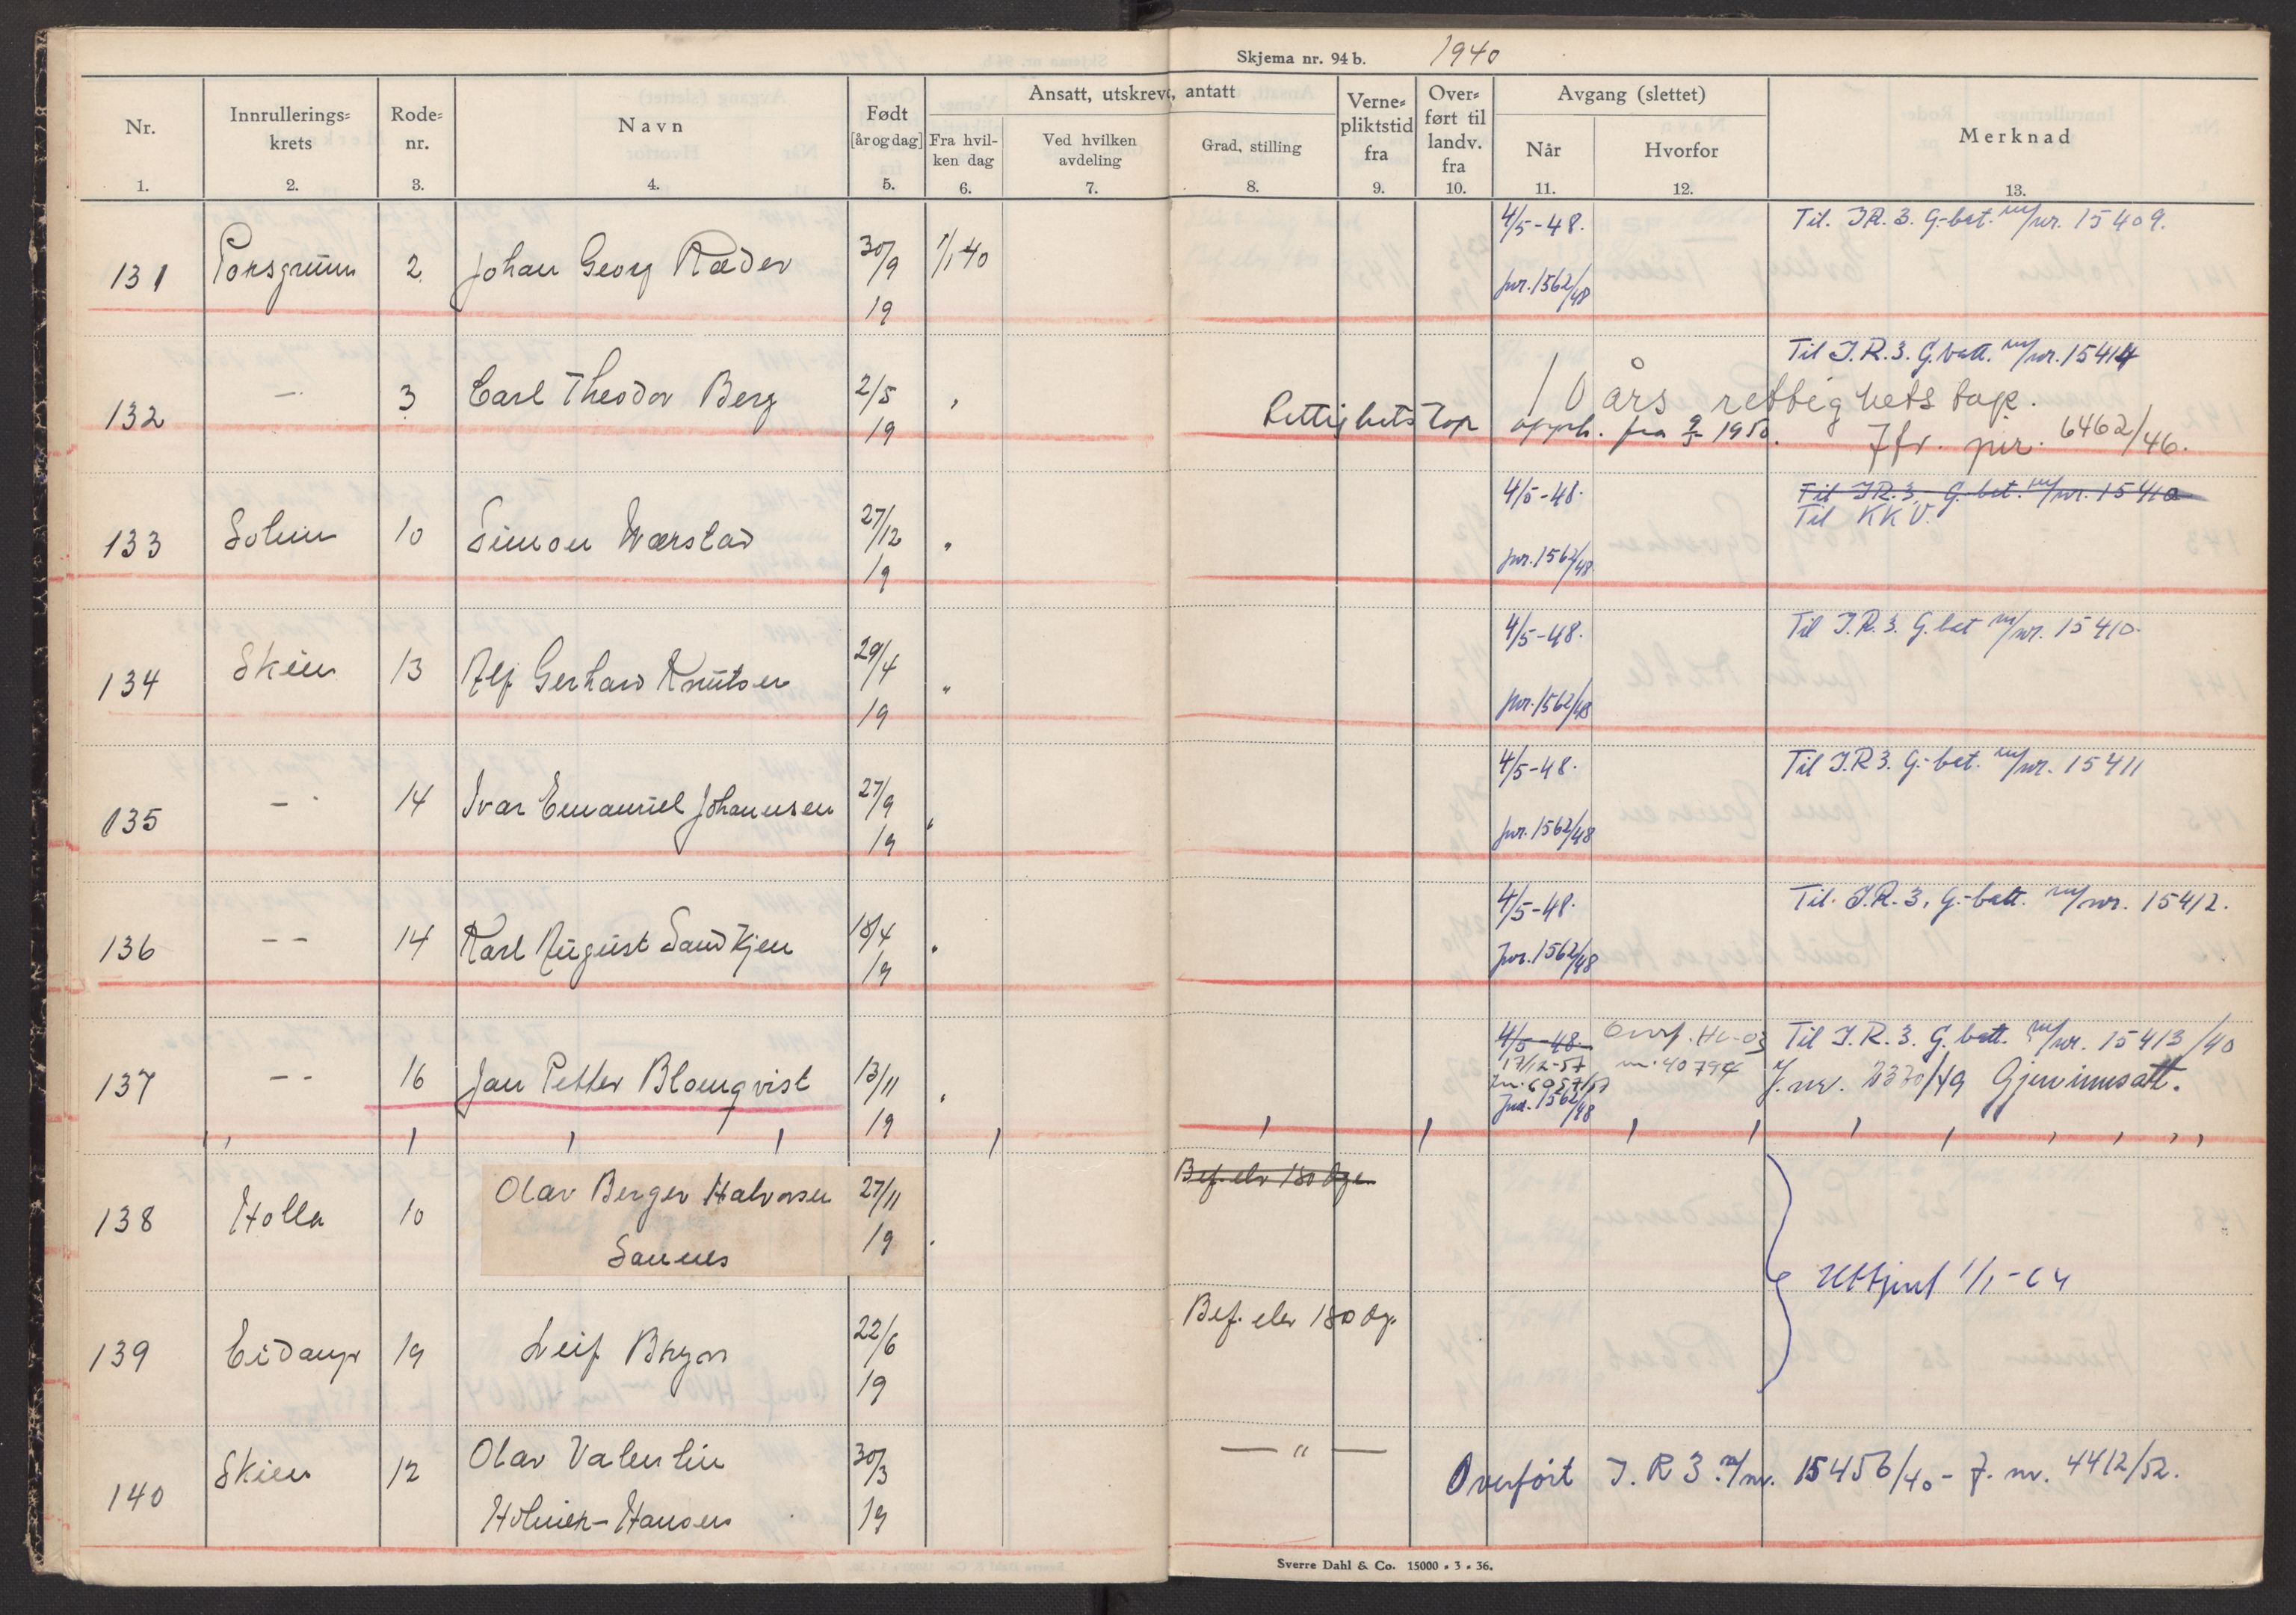 Skjema nr. 94 b. 1940
Nr. Innrullerings-krets Rode-nr. Navn Født [år og dag] Ansatt, utskrevet, antatt Verne-pliktstid fra Over-ført til landv. fra Avgang (slettet) Merknad
Fra hvil-ken dag Ved hvilken avdeling Grad, stilling Når Hvorfor
1. 2. 3. 4. 5. 6. 7. 8. 9. 10. 11. 12. 13.
4/5-48. Til. IR. 3. G-bat. m/nr. 15409.
131 Porsgrunn 2 Johan Georg Ræder 30/9 19 1/1 40
jnr. 1562/48
Til I.R.3. G.batt. m/nr. 15414
132 — 3 Carl Theodor Berg 2/5 19 "
10 års rettighetstap.
Rettighetstap opph. fra 9/5 1950. Jfr. jnr. 6462/46.
4/5-48. Til IR.3. G-bat. m/nr. 15410
Til KKV.
133 Solum 10 Simon Wærstad 27/12 19 "
jnr. 1562/48
4/5-48. Til I.R.3. G.bat m/nr. 15410.
134 Skien 13 Alf Gerhard Knutsen 29/4 19 "
jnr. 1562/48
4/5-48. Til I.R3. G.-bat. m/nr. 15411
135 — 14 Ivar Emanuel Johannesen 27/9 19 "
jnr. 1562/48
4/5-48. Til. I.R.3. G.-batt. m/nr. 15412.
136 — — 14 Karl August Sandkjen 18/4 19 "
jnr. 1562/48
4/5-48 Overf. Hv-03 Til I.R.3. G.batt. m/nr. 15413/40
17/12-57 nr. 40794
137 — — 16 Jan Petter Blomqvist 13/11 19 "
jnr. 6957/57 J.nr. 2370/49 Gjeninnsatt.
Jnr. 1562/48
Bef. elev 180 dgr.
138 Holla 10 Olav Berger Halvorsen 27/11 19
Sannes
Uttjent 1/1-64
139 Eidanger 19 Leif Bryn 22/6 19 Bef. elev 180 dg.
140 Skien 12 Olav Valentin 30/3 19 — " —
Holmen-Hansen
Overført I.R 3. m/nr. 15456/40 - J. nr. 4412/52.
Sverre Dahl & Co. 15000 . 3 . 36.